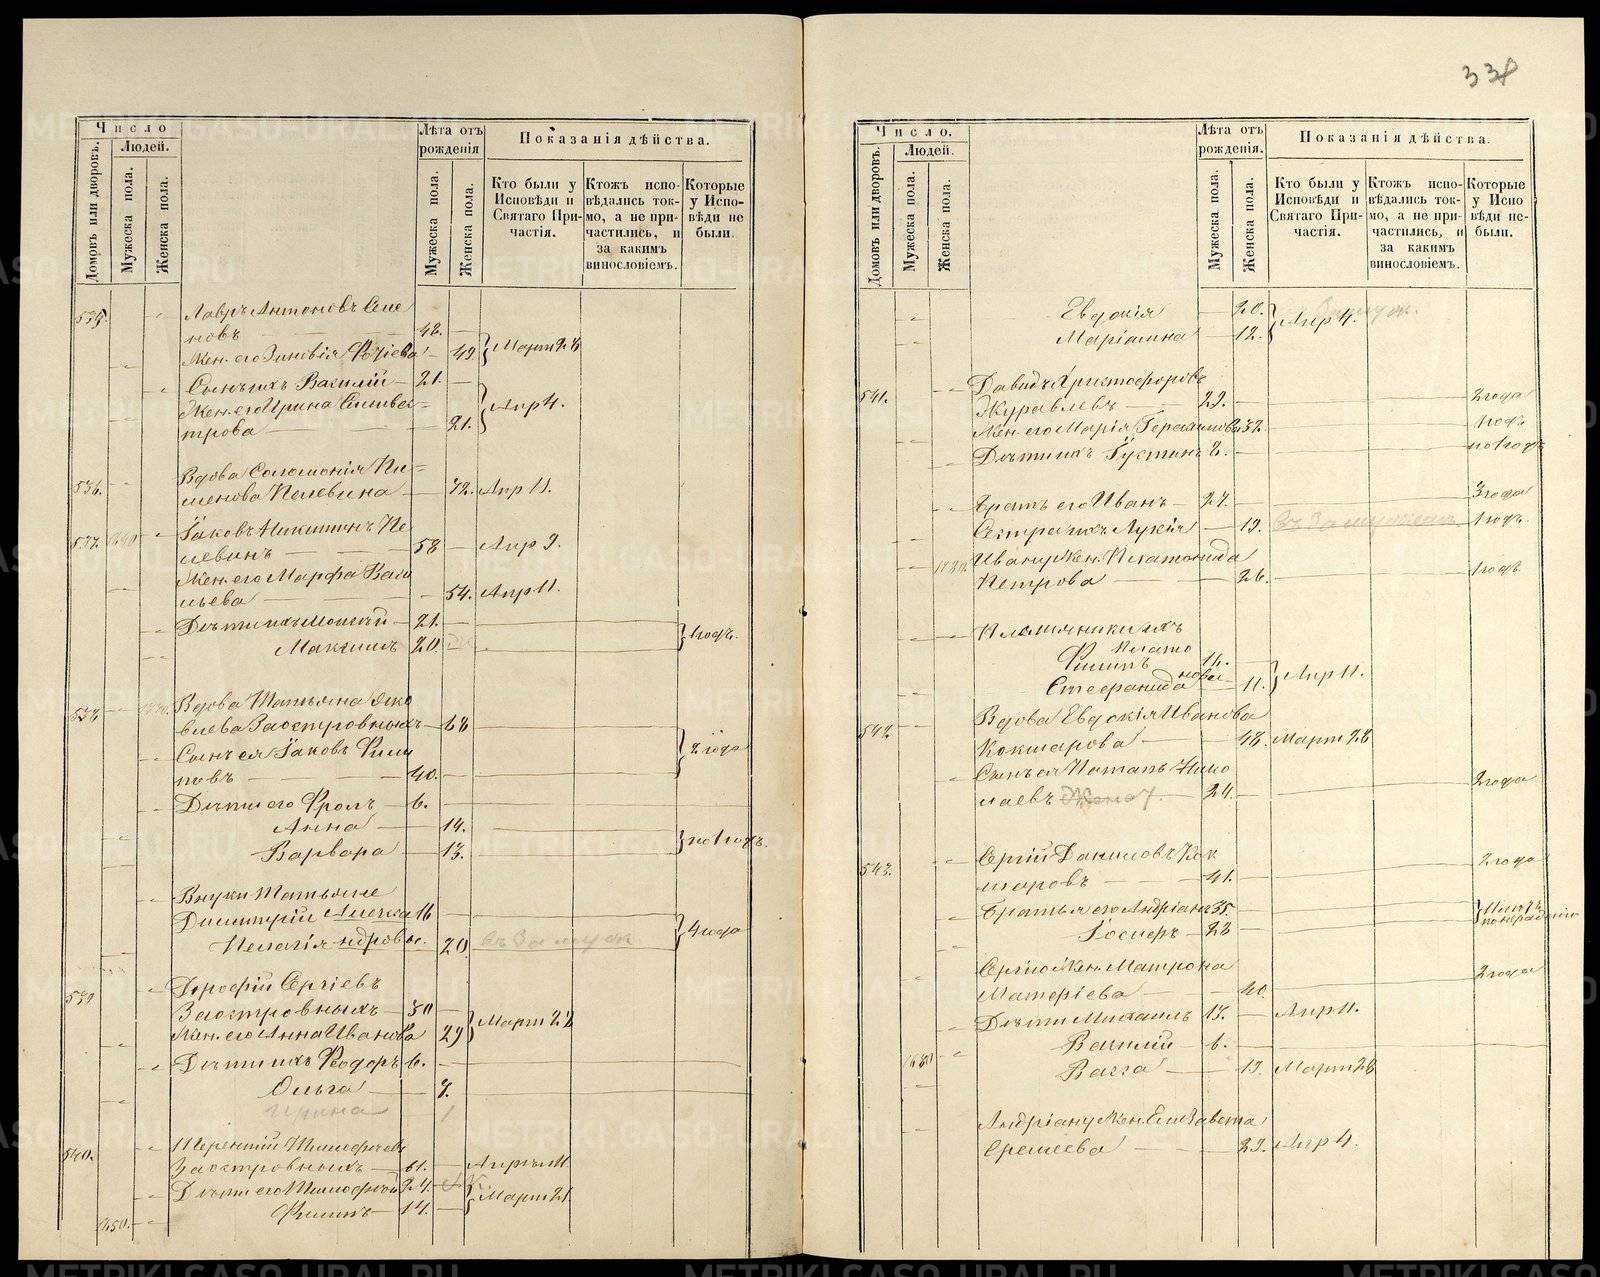 338
Число
Людей.
Домовъ или дворовъ.
Мужеска пола.
Женска пола.
Лѣта отъ рожденія
Мужеска пола.
Женска пола.
Показанія дѣйства.
Кто были у Исповѣди и Святаго Причастія.
Ктожъ исповѣдались токмо, а не причастились, и за какимъ винословіемъ.
Которые у Исповѣди не были.
Лавръ Антоновъ Семе
новъ 48.
Жен. его Зиновія 49. Март 28
Сынъ ихъ Василій 21.
Жен. его Ирина Сильве=
трова 21. Апр 4.
536. Вдова Соломонія Пи=
менова Пелевина 72. Апр 11.
537. Іаковъ Никитинъ Пе
левинъ 58 Апр 9.
Жен. его Марфа Васи
льева 54. Апр 11.
Дѣти ихъ 21.
Максимъ 20 1 годъ.
538. Вдова Татьяна Яко
влева Заостровныхъ 68
Сынъ ея Іаковъ Фили
повъ 40. 2 года
Дѣти его Фролъ 6.
Анна 14.
Варвара 13. по 1 годъ.
Внуки Татьяне
Димитрій Алекса 16
Пелагія ндровы. 20 въ замуж 4 года
539 Дорофій Сергіевъ
Заостровныхъ 30
Жен. его Анна Иванова 29 Март 28
Дѣти ихъ Феодоръ 6.
Ольга 7.
Ирина 1
540. Терентій Тимофѣевъ
Заостровныхъ 61. Апрѣл 11
Дѣти его Тимофей 24.
Филипъ 14. Март 21
Число.
Людей.
Домовъ или дворовъ.
Мужеска пола.
Женска пола.
Лѣта отъ рожденія.
Мужеска пола.
Женска пола.
Показанія дѣйства.
Кто были у Исповѣди и Святаго Причастія.
Ктожъ исповѣдались токмо, а не причастились, и за какимъ винословіемъ.
Которые у Исповѣди не были.
Евдокія 20.
Маріамна 12. Апр 4.
541. Давидъ Христофоровъ
Журавлевъ 29. 2 года
Жен. его Марія Герасимова 32. 1 годъ
Дѣти ихъ Іустинъ 8. по 1 годъ
Братъ его Иванъ 27. 3 года
Сестра ихъ Лукія 19. въ замужем 1 годъ.
Ивану Жен. Платонида
Петрова 26. 1 годъ
Племянники ихъ
Филипъ Плато 16.
Стефанида новы 11. Апр 11.
542. Вдова Евдокія Иванова
Кокшарова 48. Март 28
Сынъ ея Потапъ Нико
лаевъ 24. 2 года
543. Сергій Даниловъ Кок
шаровъ 41. 2 года
Братья его Андріанъ 35.
Іосифъ 28
Сергію Жен. Матрона
40. 2 года
Дѣти Михаилъ 13. Апр 11.
Василій 6.
Васса 19. Март 28
Андріану Жен. Елизавета
Еремеева 29. Апр 4.
METRIKI.GASO-URAL.RU